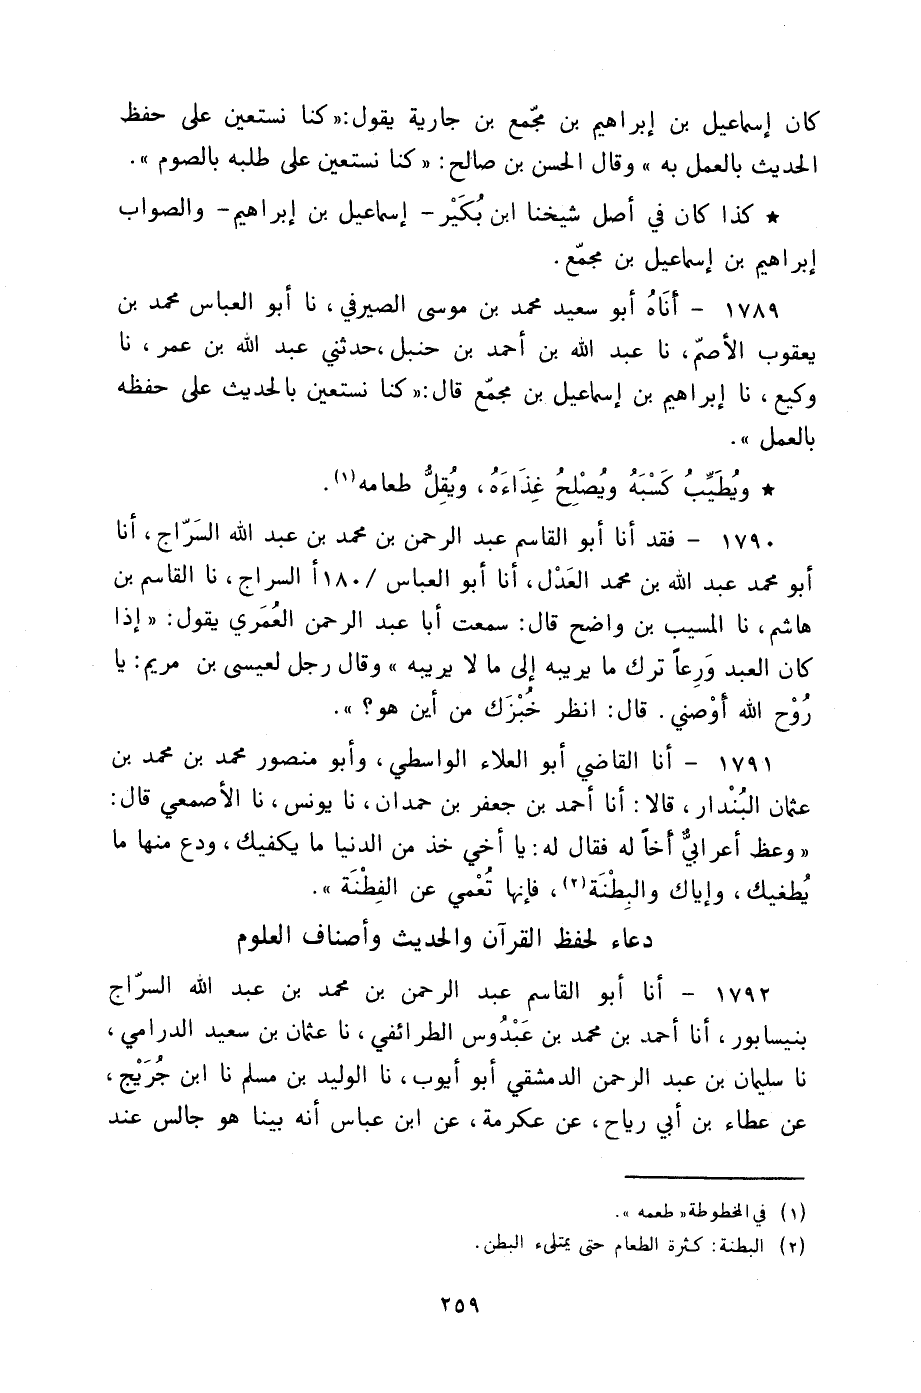 كان إسماعيل بن إبراهيم بن مجّمع بن جارية يقول:« كنا نستعين على حفظ
الحديث بالعمل به » وقال الحسن بن صالح: « كنا نستعين على طلبه بالصوم ».
★ كذا كان في أصل شيخنا ابن بُكَيْر - إسماعيل بن إبراهيم - والصواب
إبراهيم بن إسماعيل بن مجمّع.
١٧٨٩ - أَنَاهُ أبو سعيد محمد بن موسى الصيرفي، نا أبو العباس محمد بن
يعقوب الأصمّ، نا عبد الله بن أحمد بن حنبل،حدثني عبد الله بن عمر، نا
وكيع، نا إبراهيم بن إسماعيل بن مجمّع قال:« كنا نستعين بالحديث على حفظه
بالعمل ».
★ ويُطَيِّبُ كَسْبَهُ ويُصْلِحُ غِذَاءَهُ، ويُقِلُّ طعامه(١).
١٧٩٠ - فقد أنا أبو القاسم عبد الرحمن بن محمد بن عبد الله السَرّاج، أنا
أبو محمد عبد الله بن محمد العَدْل، أنا أبو العباس /١٨٠أ السراج، نا القاسم بن
هاشم، نا المسيب بن واضح قال: سمعت أبا عبد الرحمن العُمَري يقول: « إذا
كان العبد وَرِعاً ترك ما يريبه إلى ما لا يريبه » وقال رجل لعيسى بن مريم: يا
رُوْح الله أوْصني. قال: انظر خُبْزَك من أين هو؟ ».
١٧٩١ - أنا القاضي أبو العلاء الواسطي، وأبو منصور محمد بن محمد بن
عثمان البُنْدار، قالا: أنا أحمد بن جعفر بن حمدان، نا يونس، نا الأصمعي قال:
« وعظ أعرابيٌّ أخاً له فقال له: يا أخي خذ من الدنيا ما يكفيك، ودع منها ما
يُطغيك، وإياك والبِطْنَة(٢)، فإنها تُعْمي عن الفِطْنَة ».
دعاء لحفظ القرآن والحديث وأصناف العلوم
١٧٩٢ - أنا أبو القاسم عبد الرحمن بن محمد بن عبد الله السرّاج
بنيسابور، أنا أحمد بن محمد بن عَبْدُوس الطرائفي، نا عثمان بن سعيد الدرامي،
نا سليمان بن عبد الرحمن الدمشقي أبو أيوب، نا الوليد بن مسلم نا ابن جُرَيْج،
عن عطاء بن أبي رياح، عن عكرمة، عن ابن عباس أنه بينا هو جالس عند
(١) في المخطوطة « طعمه ».
(٢) البطنة: كثرة الطعام حتى يمتلىء البطن.
٢٥٩